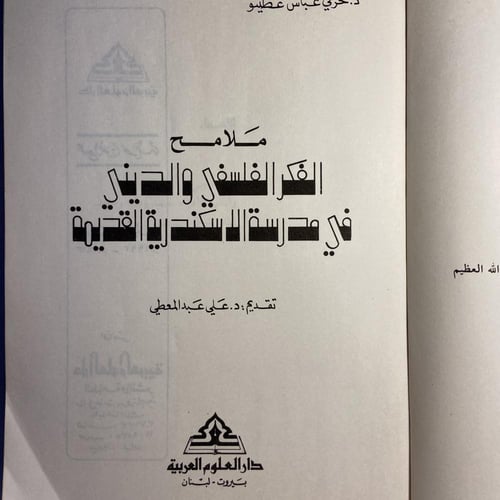 د. حربي عباس عطيتو
ملامح
الفكر الفلسفي والديني
في مدرسة الاسكندرية القديمة
تقديم: د. علي عبد المعطي
دار العلوم العربية
بيروت - لبنان
الله العظيم